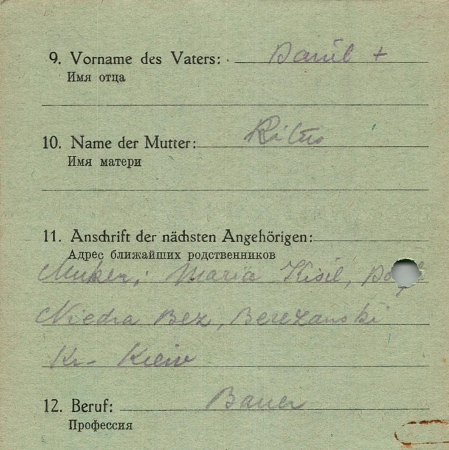 9. Vorname des Vaters: Danil +
Имя отца
10. Name der Mutter:
Имя матери
11. Anschrift der nächsten Angehörigen:
Адрес ближайших родственников
Maria Kisil,
Niedra Bez, Berezanski
Kr- Kiew
12. Beruf: Bauer
Профессия